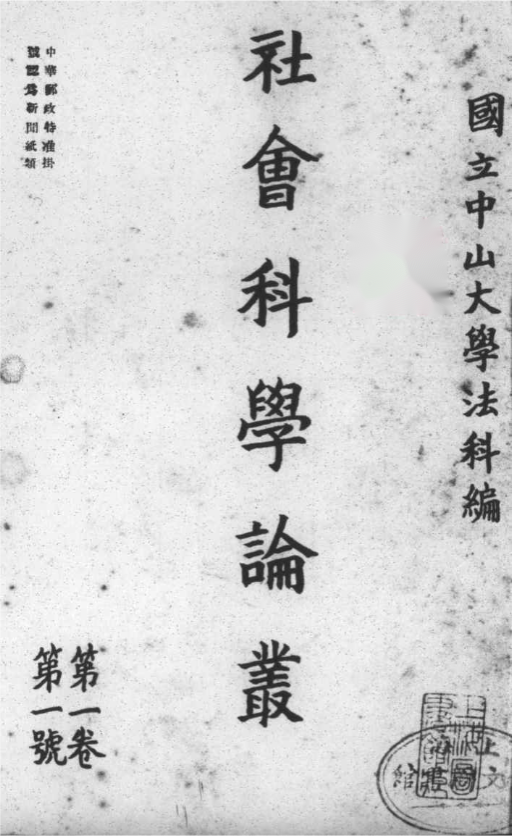 國立中山大學法科編
社會科學論叢
第一卷
第一號
中華郵政特准掛
號認爲新聞紙類